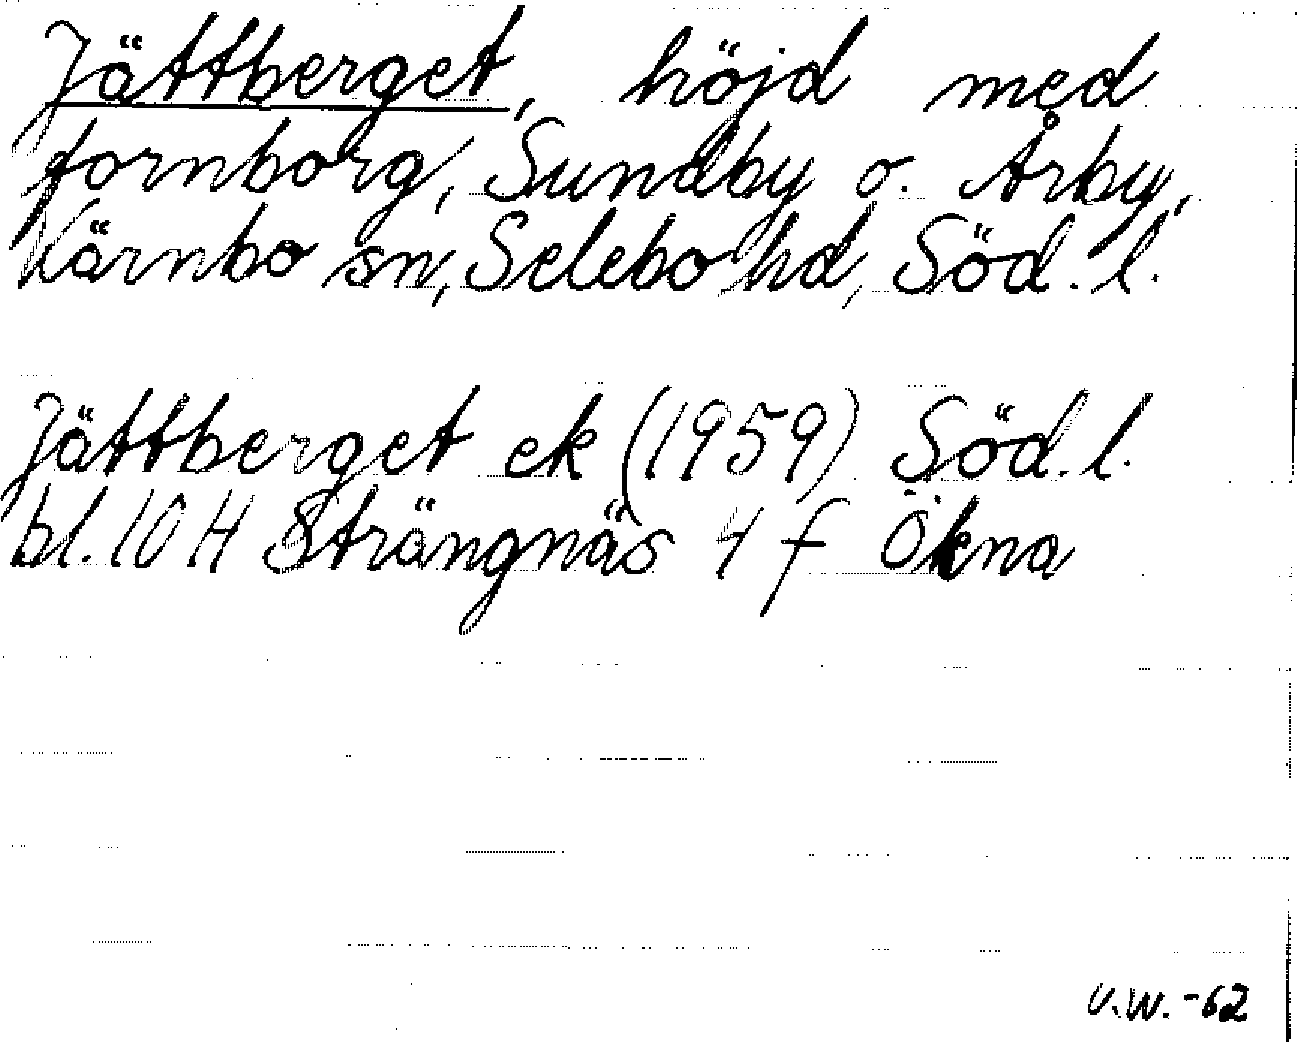 Jättberget, höjd med
fornborg, Sundby o. Årby,
Kärnbo sn, Selebo hd, Söd. l.
Jättberget ek (1959) Söd. l.
bl. 10 H Strängnäs 4 f Ökna
U.W. -62